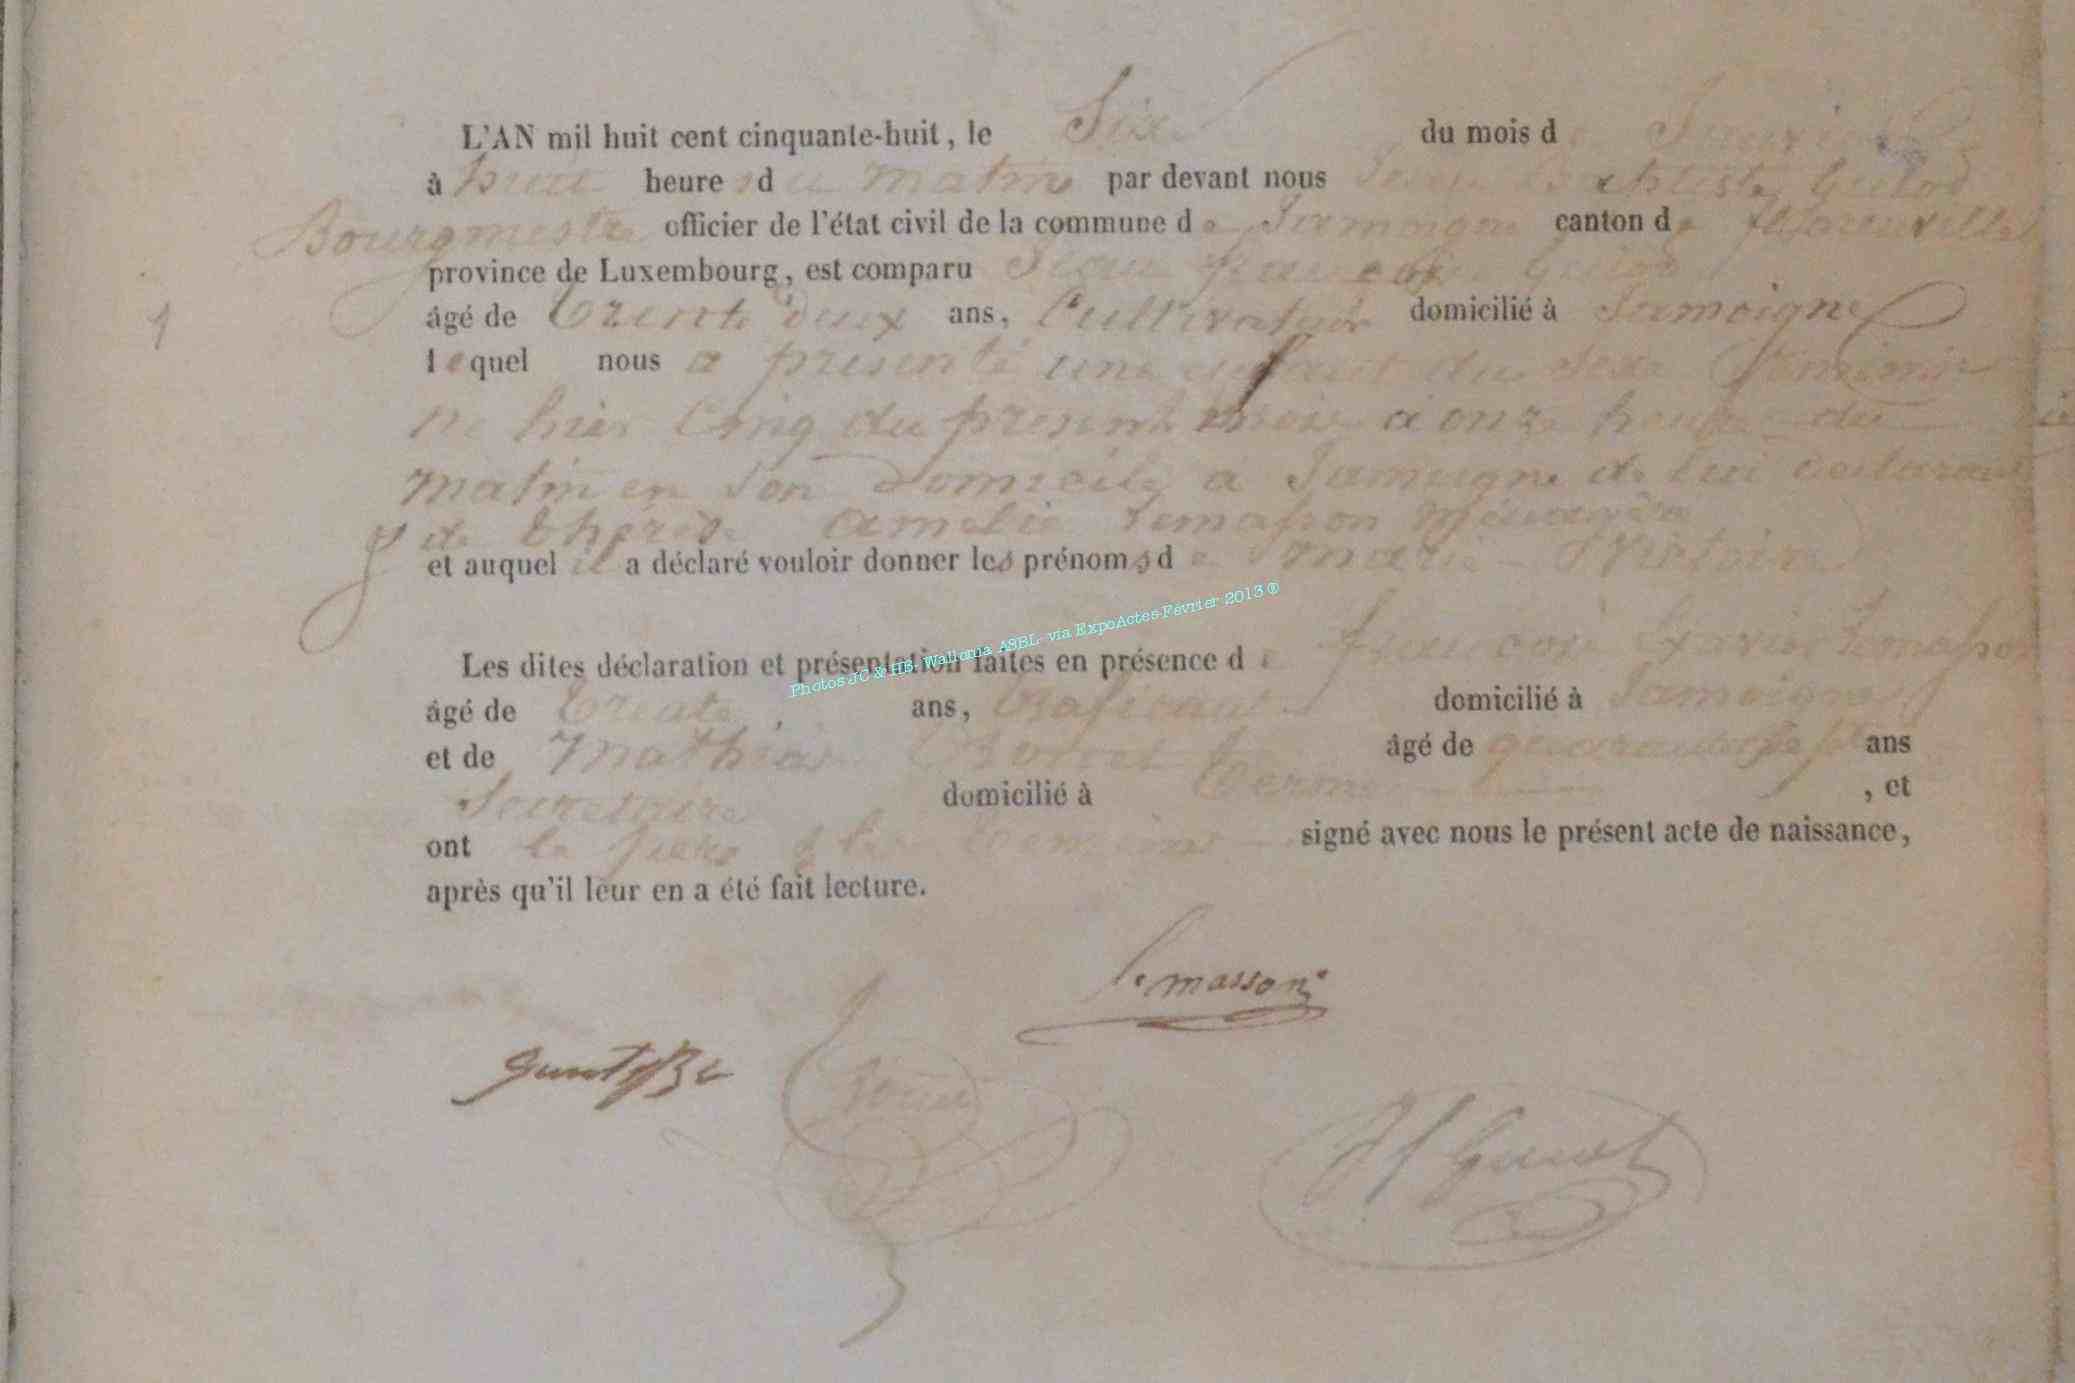 L'AN mil huit cent cinquante-huit, le Six du mois d
à huit heures du matin par devant nous Jean Baptiste
Bourgmestre officier de l'état civil de la commune de Jamoigne canton de
province de Luxembourg, est comparu Jean
âgé de trente deux ans, Cultivateur domicilié à Jamoigne
lequel nous a présenté une enfant du sexe féminin
né hier cinq du présent mois à onze heures du
matin en son domicile à Jamoigne de lui déclarant
& de thérèse amélie Lemasson ménagère
et auquel il a déclaré vouloir donner les prénoms de marie - Victoire
Les dites déclaration et présentation faites en présence de françois Lemasson
âgé de trente ans, domicilié à Jamoigne
et de Mathias âgé de ans
Secrétaire domicilié à Termes, et
ont le père & les témoins signé avec nous le présent acte de naissance,
après qu'il leur en a été fait lecture.
1
Photos JC & HB. Wallonia ASBL. via ExpoActes-Février 2013 ®
Lemasson